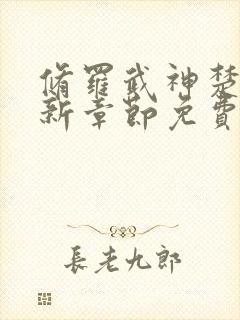 脩羅武神楚
新章節免費
長老九郎